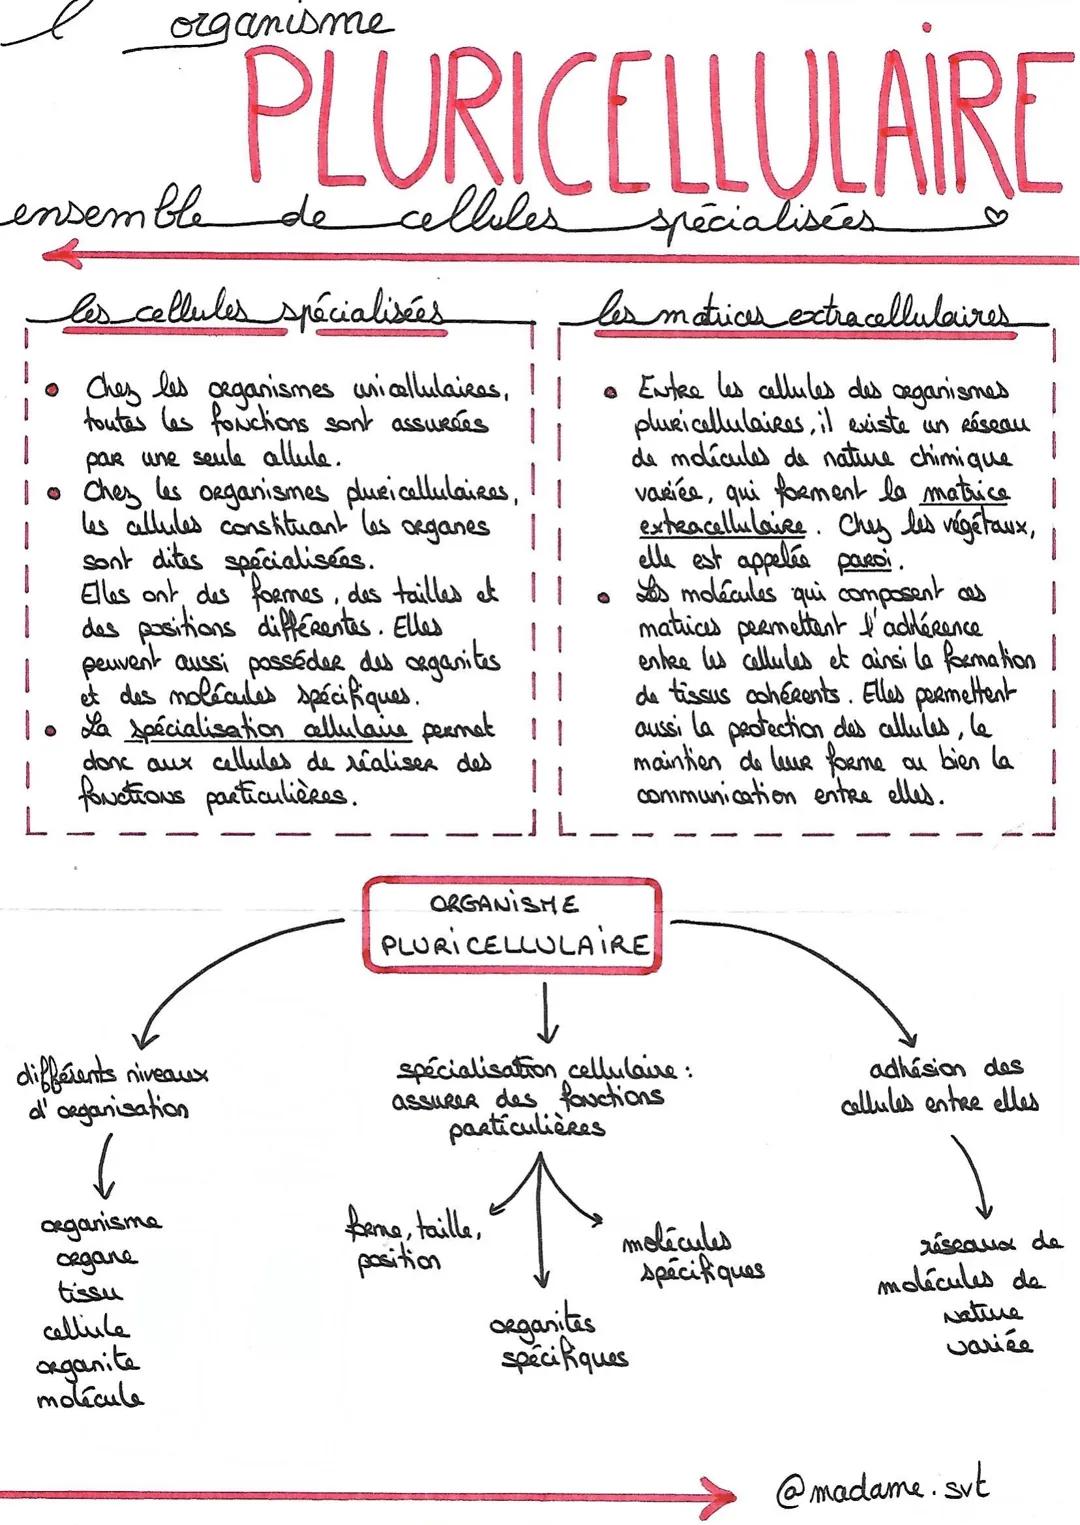 l'organisme
PLURICELLULAIRE
ensemble de cellules spécialisées
les cellules spécialisées
• Chez les organismes unicellulaires,
toutes les fonctions sont assurées
par une seule cellule.
• Chez les organismes pluricellulaires,
les cellules constituant les organes
sont dites spécialisées.
Elles ont des formes, des tailles et
des positions différentes. Elles
peuvent aussi posséder des organites
et des molécules spécifiques.
• La spécialisation cellulaire permet
donc aux cellules de réaliser des
fonctions particulières.
les matrices extracellulaires
• Entre les cellules des organismes
pluricellulaires, il existe un réseau
de molécules de nature chimique
variée, qui forment la matrice
extracellulaire. Chez les végétaux,
elle est appelée paroi.
• Les molécules qui composent ces
matrices permettent l'adhérence
entre les cellules et ainsi la formation
de tissus cohérents. Elles permettent
aussi la protection des cellules, le
maintien de leur forme ou bien la
communication entre elles.
ORGANISME
PLURICELLULAIRE
différents niveaux
d'organisation
organisme
organe
tissu
cellule
organite
molécule
spécialisation cellulaire :
assurer des fonctions
particulières
forme, taille,
position
organites
spécifiques
molécules
spécifiques
adhésion des
cellules entre elles
réseaux de
molécules de
nature
variée
@madame.svt